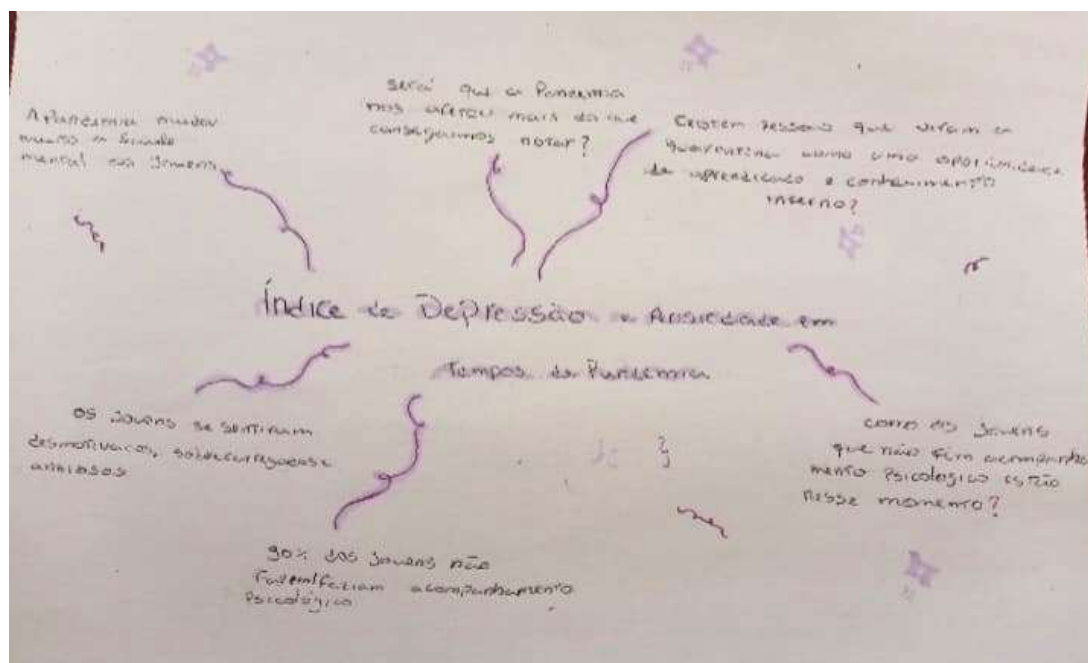 A Pandemia mudou
muito a saúde
mental dos Jovens
será que a Pandemia
nos afetou mais do que
conseguimos notar?
Existem pessoas que viram a
quarentena como uma oportunidade
de aprendizado e conhecimento
interno?
Índice de Depressão e Ansiedade em
Tempos de Pandemia
os Jovens se sentiram
desmotivados, sobrecarregados e
ansiosos
90% dos Jovens não
fazem/faziam acompanhamento
Psicológico
como os Jovens
que não têm acompanha
mento Psicológico estão
nesse momento?